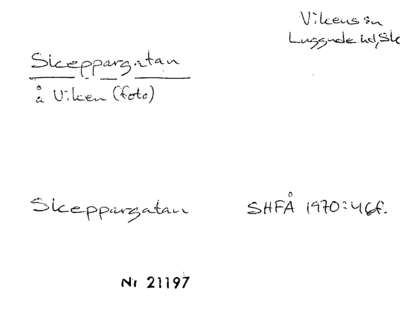 Vikens sn
Luggude hd, Sk
Skeppargatan
å Viken (foto)
Skeppargatan SHFÅ 1970:46f.
Nr 21197